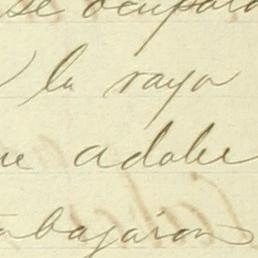 se ocuparo
la raya
ue adobe
abajaron